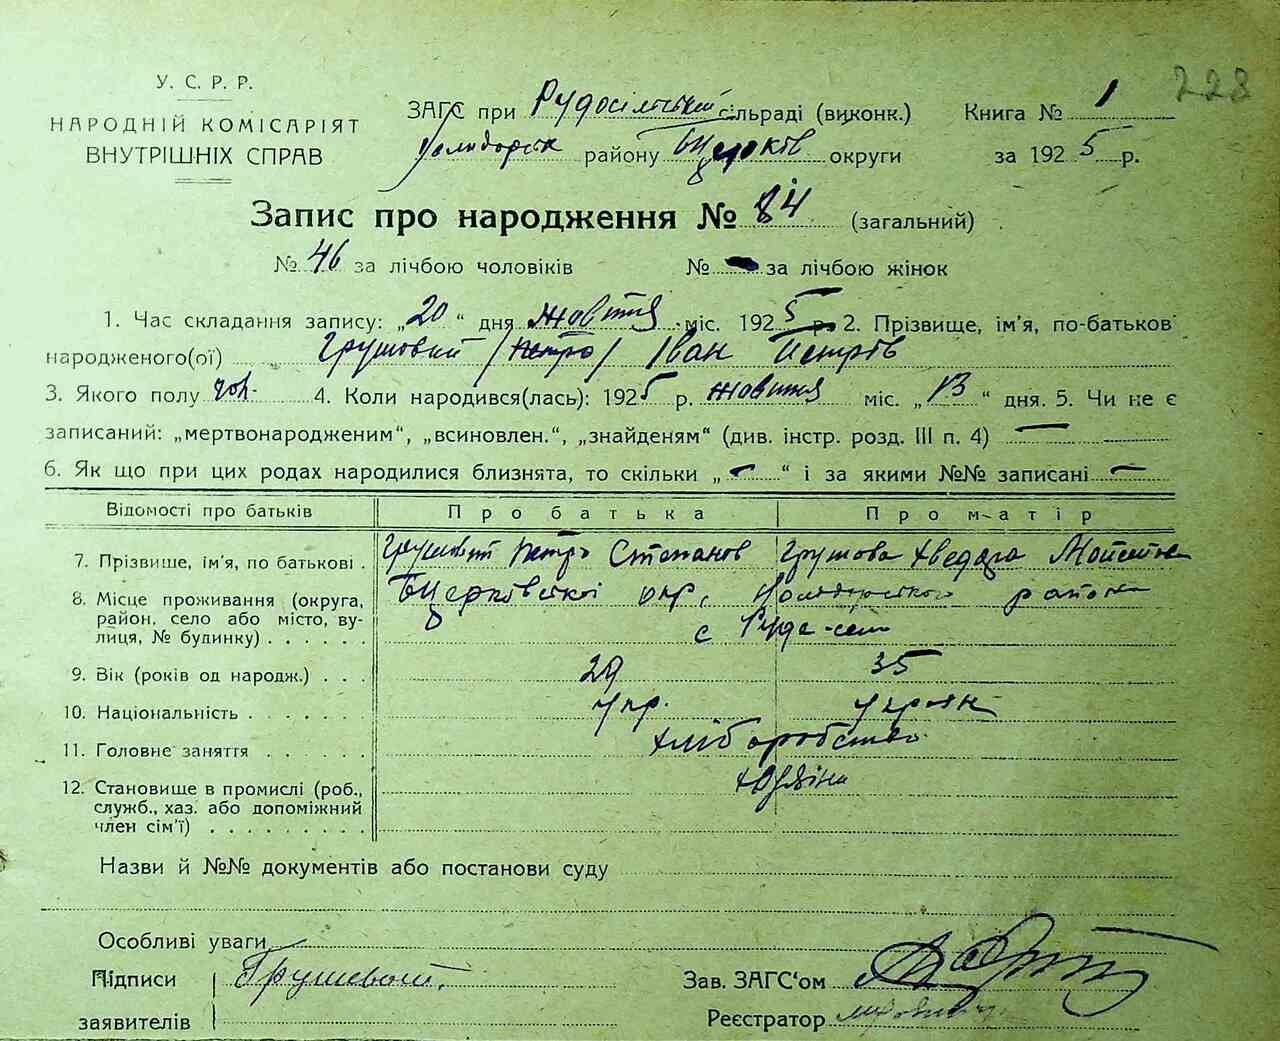 228
У. С. Р. Р.
НАРОДНІЙ КОМІСАРІЯТ
ВНУТРІШНІХ СПРАВ
ЗАГС при Рудосільській сільраді (виконк.) Книга № 1
району Бцерків округи за 1925 р.
Запис про народження № 84 (загальний)
№ 46 за лічбою чоловіків № за лічбою жінок
1. Час складання запису: „20“ дня жовтня міс. 1925 р. 2. Прізвище, ім'я, по-батьков
народженого(ої) Грушовий (Петро) Іван Петрів
3. Якого полу чол. 4. Коли народився(лась): 1925 р. жовтня міс. „13“ дня. 5. Чи не є
записаний: „мертвонародженим“, „всиновлен.“, „знайденям“ (див. інстр. розд. III п. 4) —
6. Як що при цих родах народилися близнята, то скільки „—“ і за якими №№ записані —
Відомості про батьків Про батька Про матір
7. Прізвише, ім'я, по батькові . Грушовий Петро Степанов Грушова Хведора
8. Місце проживання (округа, Бцерківської окр. району
район, село або місто, ву-
лиця, № будинку) . . . . . с Руде-село
9. Вік (років од народж.) . . . 29 35
10. Національність . . . . . . . Укр. Украян
11. Головне заняття . . . . . . хліборобство
12. Становище в промислі (роб., хазяїни
служб., хаз. або допоміжний
член сім'ї) . . . . . . . . .
Назви й №№ документів або постанови суду
Особливі уваги
Підписи Грушевий. Зав. ЗАГС'ом
заявителів Реєстратор